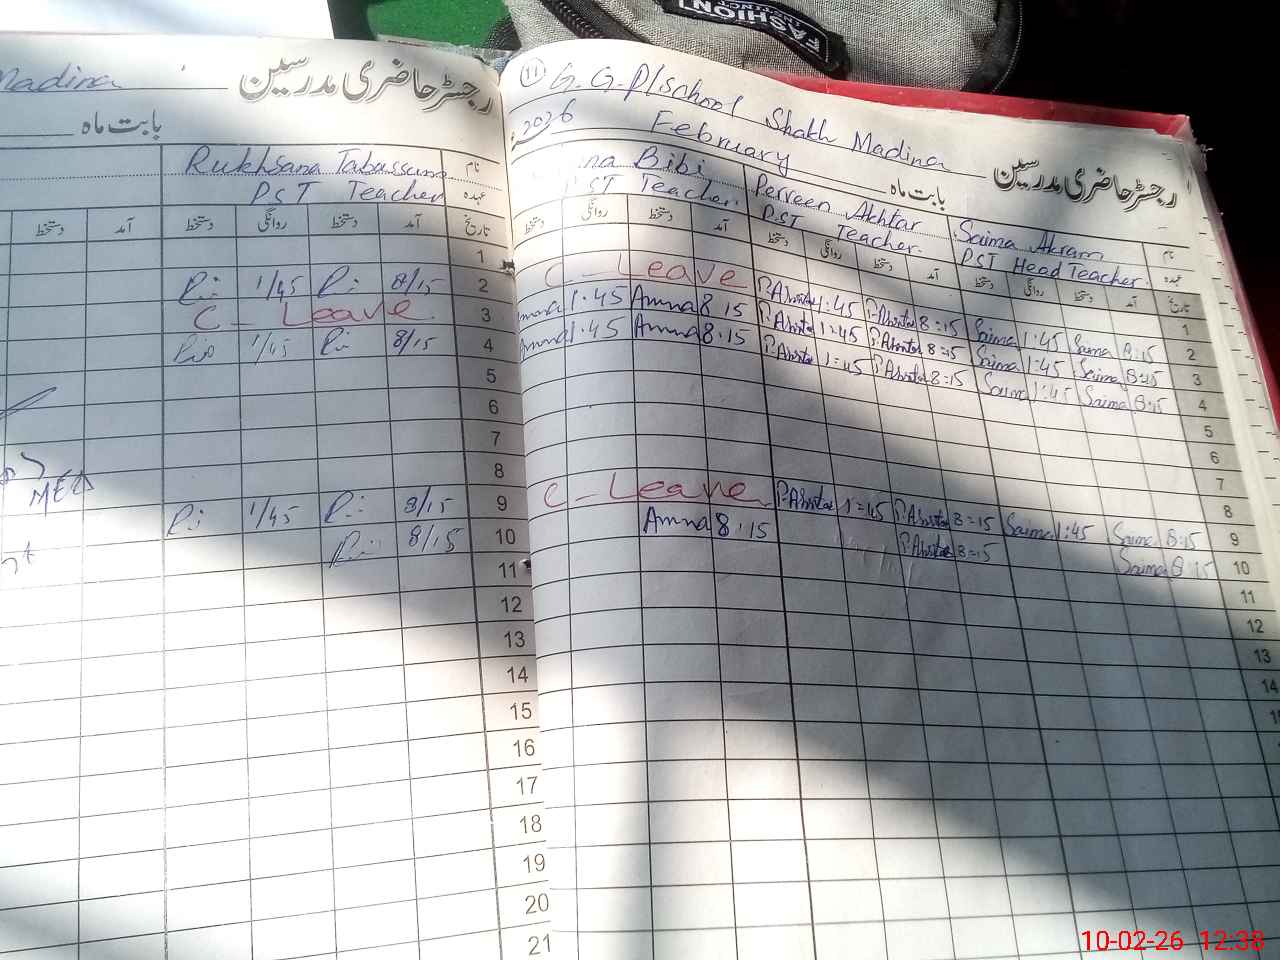 FASHION
Madina
رجسٹر حاضری مدرسین
بابت ماہ
Rukhsana Tabassum نام
PST Teacher عہدہ
دستخط آمد دستخط روانگی دستخط آمد تاریخ
1
1/45 8/15 2
C - Leave 3
1/45 8/15 4
5
6
7
8
1/45 8/15 9
8/15 10
11
12
13
14
15
16
17
18
19
20
21
11 G.G.P/School Shakh Madina
رجسٹر حاضری مدرسین
2026 February بابت ماہ
Bibi Perveen Akhtar Saima Akram نام
PST Teacher. PST Teacher. PST Head Teacher. عہدہ
دستخط روانگی دستخط آمد دستخط روانگی دستخط آمد دستخط روانگی دستخط آمد تاریخ
1
C - Leave P.Akhtar 1:45 P.Akhtar 8=15 Saima 1:45 Saima 8:15 2
1:45 Amna 8 15 P.Akhtar 1:45 P.Akhtar 8=15 Saima 1:45 Saima 8:15 3
Amna 1:45 Amna 8:15 P.Akhtar 1:45 P.Akhtar 8=15 Saima 1:45 Saima 8:15 4
5
6
7
8
C - Leave P.Akhtar 1=45 P.Akhtar 8=15 Saima 1:45 Saima 8:15 9
Amna 8:15 P.Akhtar 8=15 Saima 8:15 10
11
12
13
14
10-02-26 12:38